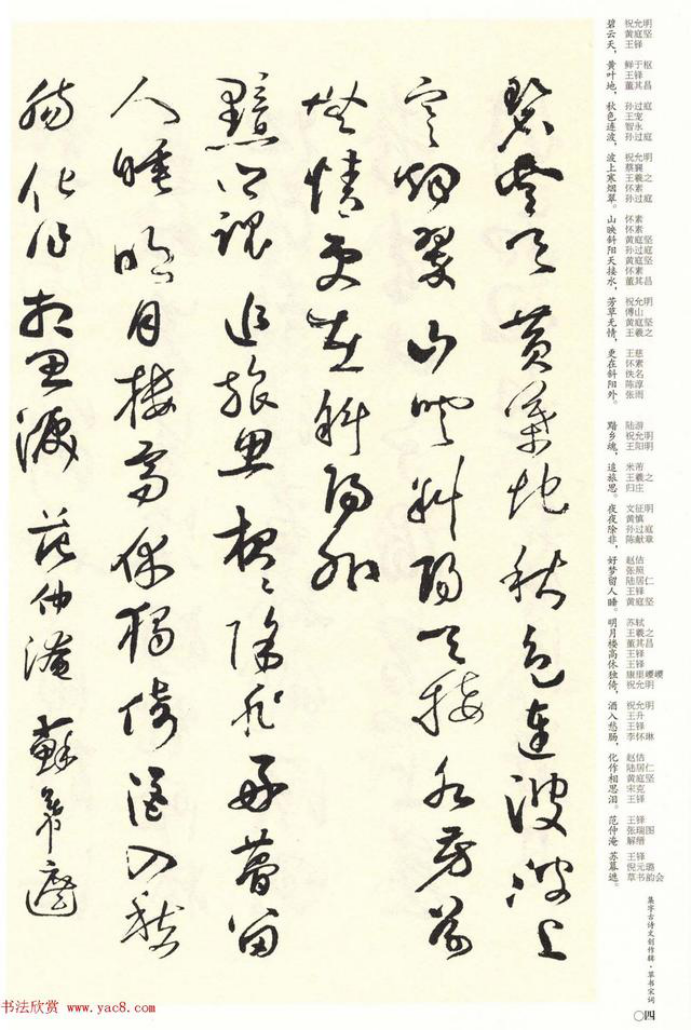 碧雲天黄葉地秋色連波波上
寒烟翠山映斜陽天接水芳草
無情更在斜陽外
黯鄉魂追旅思夜〻除非好夢留
人睡明月樓高休獨倚酒入愁
腸化作相思淚范仲淹蘇幕遮
碧云天，
祝允明
黄庭坚
王铎
黄叶地，
鲜于枢
王铎
董其昌
秋色连波，
孙过庭
王宠
智永
孙过庭
波上寒烟翠。
祝允明
蔡襄
王羲之
怀素
孙过庭
山映斜阳天接水，
怀素
怀素
黄庭坚
孙过庭
黄庭坚
怀素
董其昌
芳草无情，
祝允明
傅山
黄庭坚
王羲之
更在斜阳外。
王慈
怀素
佚名
陈淳
张雨
黯乡魂，
陆游
祝允明
王阳明
追旅思。
米芾
王羲之
归庄
夜夜除非，
文征明
黄慎
孙过庭
陈献章
好梦留人睡。
赵佶
张照
陆居仁
王铎
黄庭坚
明月楼高休独倚，
苏轼
王羲之
董其昌
王铎
王铎
康里巎巎
祝允明
酒入愁肠，
祝允明
王升
王铎
李怀琳
化作相思泪。
赵佶
陆居仁
黄庭坚
宋克
王铎
范仲淹
王铎
张瑞图
解缙
苏幕遮。
王铎
倪元璐
草书韵会
集字古诗文创作辑·草书宋词
〇四
书法欣赏 www.yac8.com